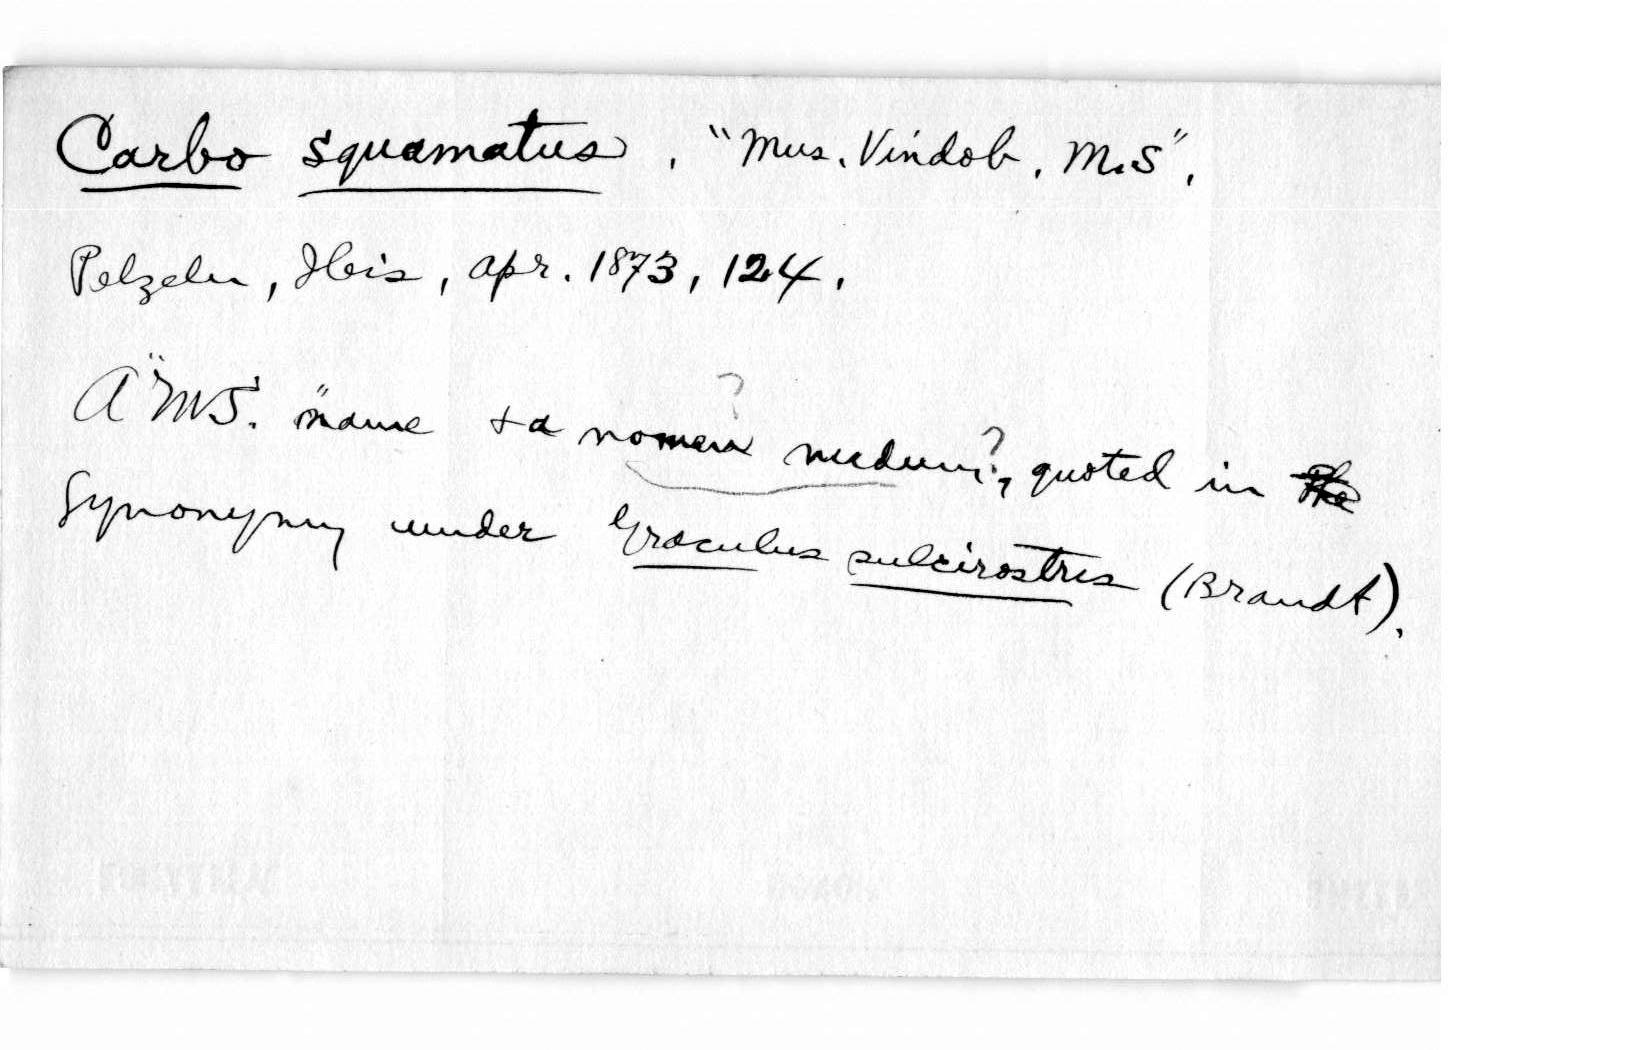 Carbo squamatus, "Mus. Vindob. M.S",
Pelzeln, Ibis, Apr. 1873, 124.
A "MS." name + a nomen nudum?, quoted in the
Synonymy under Graculus sulcirostris (Brandt).